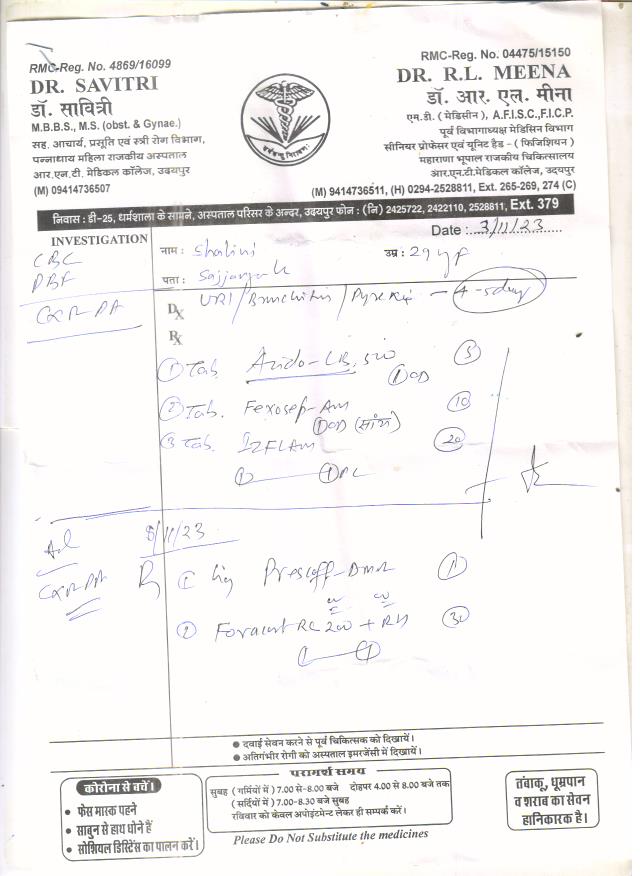 RMC-Reg. No. 4869/16099
DR. SAVITRI
डॉ. सावित्री
M.B.B.S., M.S. (obst. & Gynae.)
सह. आचार्य, प्रसूति एवं स्त्री रोग विभाग,
पन्नाधाय महिला राजकीय अस्पताल
आर.एन.टी. मेडिकल कॉलेज, उदयपुर
(M) 09414736507
RMC-Reg. No. 04475/15150
DR. R.L. MEENA
डॉ. आर. एल. मीना
एम.डी. ( मेडिसीन ), A.F.I.S.C.,F.I.C.P.
पूर्व विभागाध्यक्ष मेडिसिन विभाग
सीनियर प्रोफेसर एवं यूनिट हैड - ( फिजिशियन )
महाराणा भूपाल राजकीय चिकित्सालय
आर.एन.टी.मेडिकल कॉलेज, उदयपुर
(M) 9414736511, (H) 0294-2528811, Ext. 265-269, 274 (C)
निवास : डी-25, धर्मशाला के सामने, अस्पताल परिसर के अन्दर, उदयपुर फोन : (नि) 2425722, 2422110, 2528811, Ext. 379
Date : 3/11/23
INVESTIGATION
CBC
PBF
CXR PA
नाम : Shalini
उम्र : 29 y F
पता :
DX URI/Bronchitis/Pyrexia - 4-5 day
RX
① Tab. Azido-LB 500 ⑤
① OD
② Tab. Fexosep-AM ⑩
① OD (सांय)
③ Tab. IZFLAM ⑳
①—①
Ad 8/11/23
CXR PA
R
①
② Foracort RC 200 +
①—①
● दवाई सेवन करने से पूर्व चिकित्सक को दिखायें।
● अतिगंभीर रोगी को अस्पताल इमरजेंसी में दिखायें।
कोरोना से बचें।
• फेस मास्क पहने
• साबुन से हाथ धोने हैं
• सोशियल डिस्टिेंस का पालन करें।
परामर्श समय
सुबह ( गर्मियों में ) 7.00 से-8.00 बजे दोहपर 4.00 से 8.00 बजे तक
( सर्दियों में ) 7.00-8.30 बजे सुबह
रविवार को केवल अपोइंटमेन्ट लेकर ही सम्पर्क करें।
Please Do Not Substitute the medicines
तंबाकू, धूम्रपान
व शराब का सेवन
हानिकारक है।